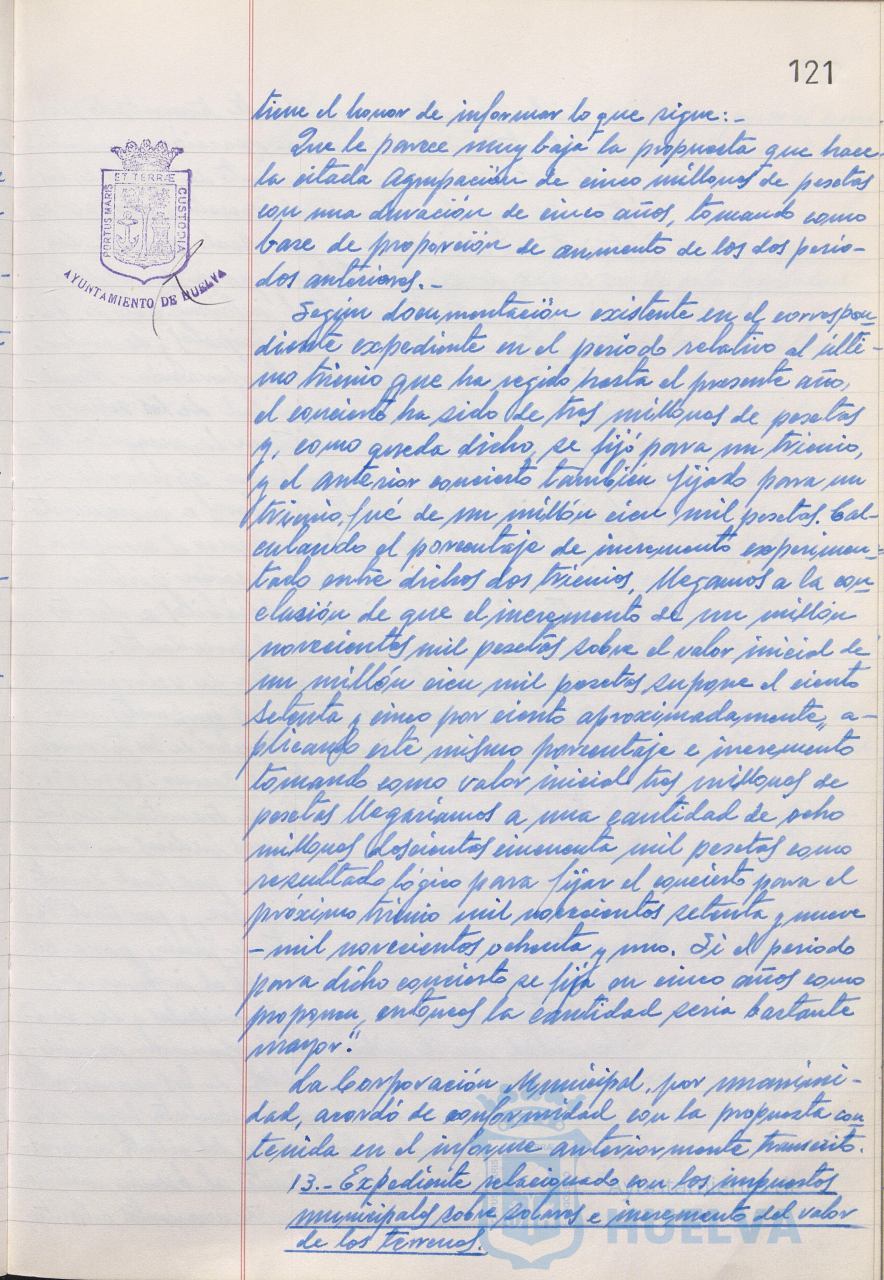 121
tiene el honor de informar lo que sigue:-
Que le parece muy baja la propuesta que hace
la citada Agrupación de cinco millones de pesetas
con una duración de cinco años, tomando como
base de proporción de aumento de los dos perio-
dos anteriores.-
Según documentación existente en el correspon-
diente expediente en el periodo relativo al últi-
mo trienio que ha regido hasta el presente año,
el concierto ha sido de tres millones de pesetas
y, como queda dicho, se fijó para un trienio,
y el anterior concierto también fijado para un
trienio, fué de un millón cien mil pesetas. Cal-
culando el porcentaje de incremento experimen-
tado entre dichos dos trienios, llegamos a la con-
clusión de que el incremento de un millón
novecientos mil pesetas sobre el valor inicial de
un millón cien mil pesetas supone el ciento
setenta y cinco por ciento aproximadamente, a-
plicando este mismo porcentaje e incremento
tomando como valor inicial tres millones de
pesetas llegaríamos a una cantidad de ocho
millones doscientos cincuenta mil pesetas como
resultado lógico para fijar el concierto para el
próximo trienio mil novecientos setenta y nueve
-mil novecientos ochenta y uno. Si el periodo
para dicho concierto se fija en cinco años como
proponen, entonces la cantidad seria bastante
mayor."
La Corporación Municipal, por unanimi-
dad, acordó de conformidad con la propuesta con
tenida en el informe anteriormente transcrito.
13.- Expediente relacionado con los impuestos
municipales sobre solares e incremento del valor
de los terrenos.
PORTUS MARIS
ET TERRÆ
CUSTODIA
AYUNTAMIENTO DE HUELVA
HUELVA